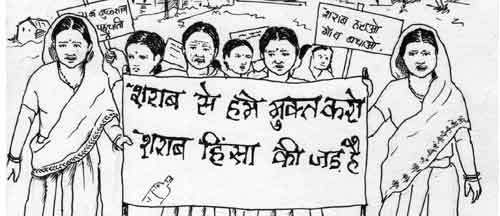 शराब हटाओ
गाँव बचाओ
शराब से हमे मुक्त करो
शराब हिंसा की जड़ है